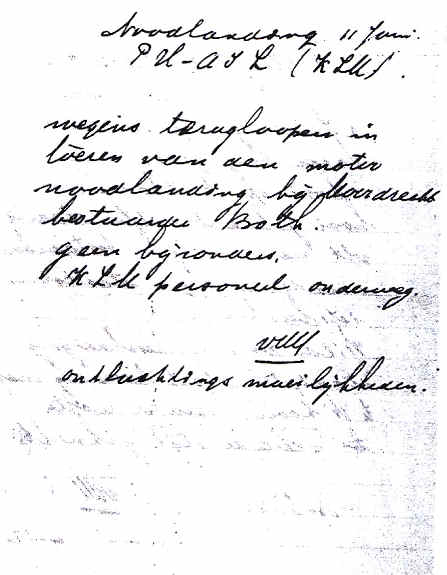 Noodlanding 11 Juni.
PH-AIL (KLM).
wegens teruglopen in
toeren van den motor
noodlanding bij Moordrecht
bestuurder Both.
geen bijzonders.
KLM personeel onderweg.
ontluchtings moeilijkheden.